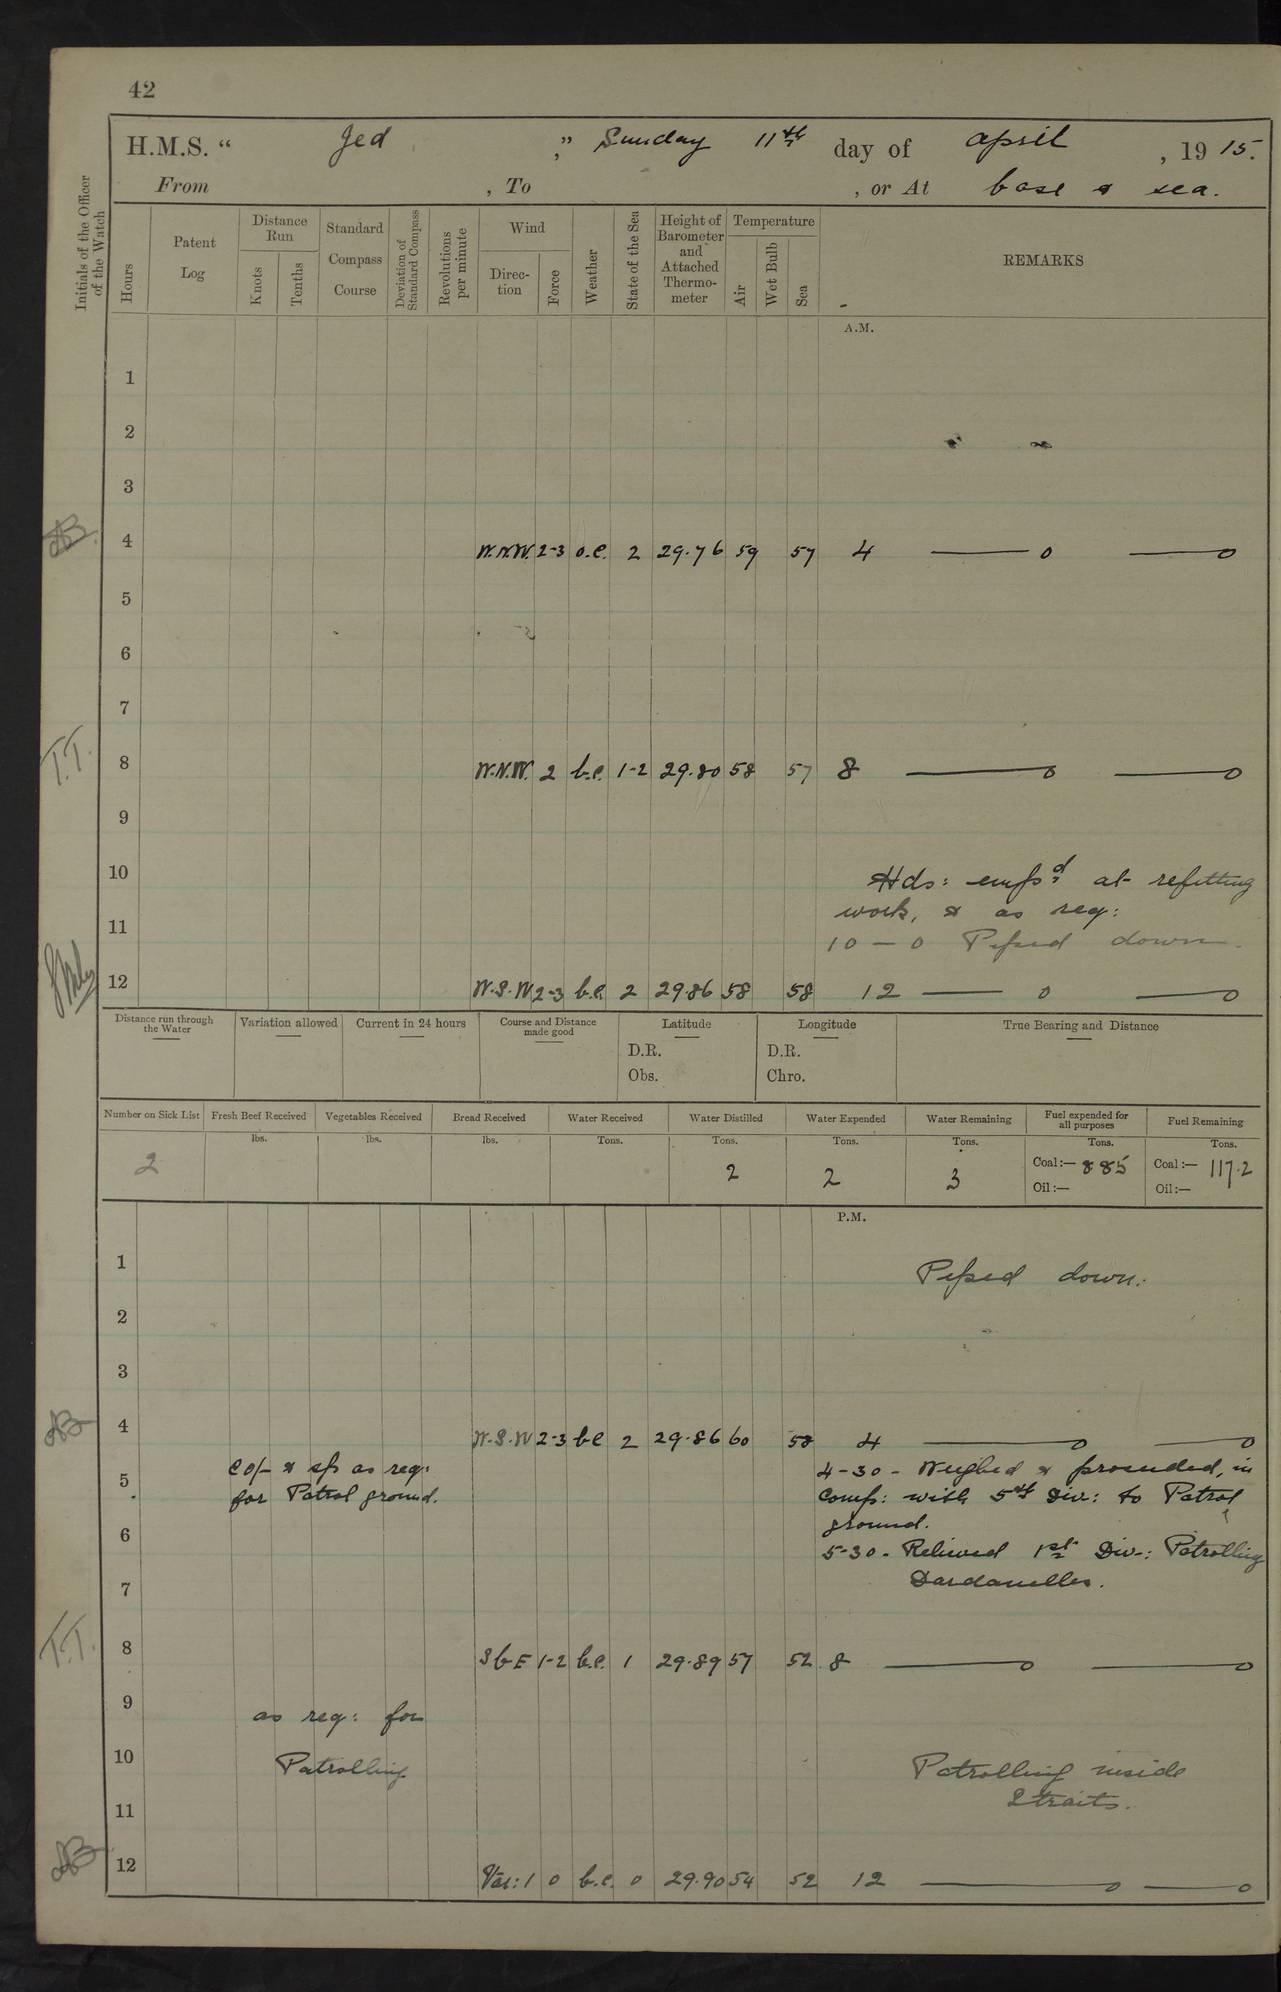 42
H.M.S. “ Jed ,” Sunday 11th day of April , 19 15.
From , To , or At base & sea.
Initials of the Officer of the Watch
Hours
Patent Log
Distance Run
Knots
Tenths
Standard Compass Course
Deviation of Standard Compass
Revolutions per minute
Wind
Direc-tion
Force
Weather
State of the Sea
Height of Barometer and Attached Thermo-meter
Temperature
Air
Wet Bulb
Sea
REMARKS
A.M.
1
2
3
4 W.N.W. 2-3 o.c. 2 29.76 59 57 4 ——o ——o
5
6
7
T.T. 8 W.N.W. 2 b.c. 1-2 29.80 58 57 8 ——o ——o
9
10 Hds: emp:d at refitting
work, & as req:
11 10-0 Piped down.
12 W.S.W 2-3 b.c. 2 29.86 58 58 12 —— o ——o
Distance run through the Water
Variation allowed
Current in 24 hours
Course and Distance made good
Latitude
D.R.
Obs.
Longitude
D.R.
Chro.
True Bearing and Distance
Number on Sick List
Fresh Beef Received
Vegetables Received
Bread Received
Water Received
Water Distilled
Water Expended
Water Remaining
Fuel expended for all purposes
Fuel Remaining
lbs. lbs. lbs. Tons. Tons. Tons. Tons. Tons. Tons.
2 2 2 3 Coal:— 885 Coal:— 117.2
Oil:— Oil:—
P.M.
1 Piped down.
2
3
4 W.S.W 2-3 b.c 2 29.86 60 58 4 ——o ——o
Co/- & sp as req:
for Patrol ground.
5 4-30 - Weighed & proceeded, in
comp: with 5th Div: to Patrol
6 ground.
5-30. Relieved 1st Div-: Patrolling
7 Dardanelles.
T.T. 8 S b E 1-2 b.c. 1 29.89 57 52 8 ——o ——o
9 as req: for
10 Patrolling Patrolling inside
11 Straits.
12 Var: 1 0 b.c. 0 29.90 54 52 12 ——o ——o